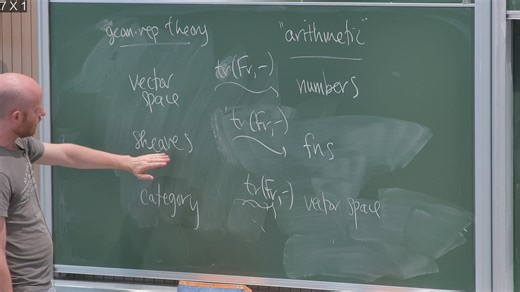 7 X 1
geom. rep theory "arithmetic"
vector space tr(Fr,-) numbers
sheaves tr(Fr,-) fns
category tr(Fr,-) vector space